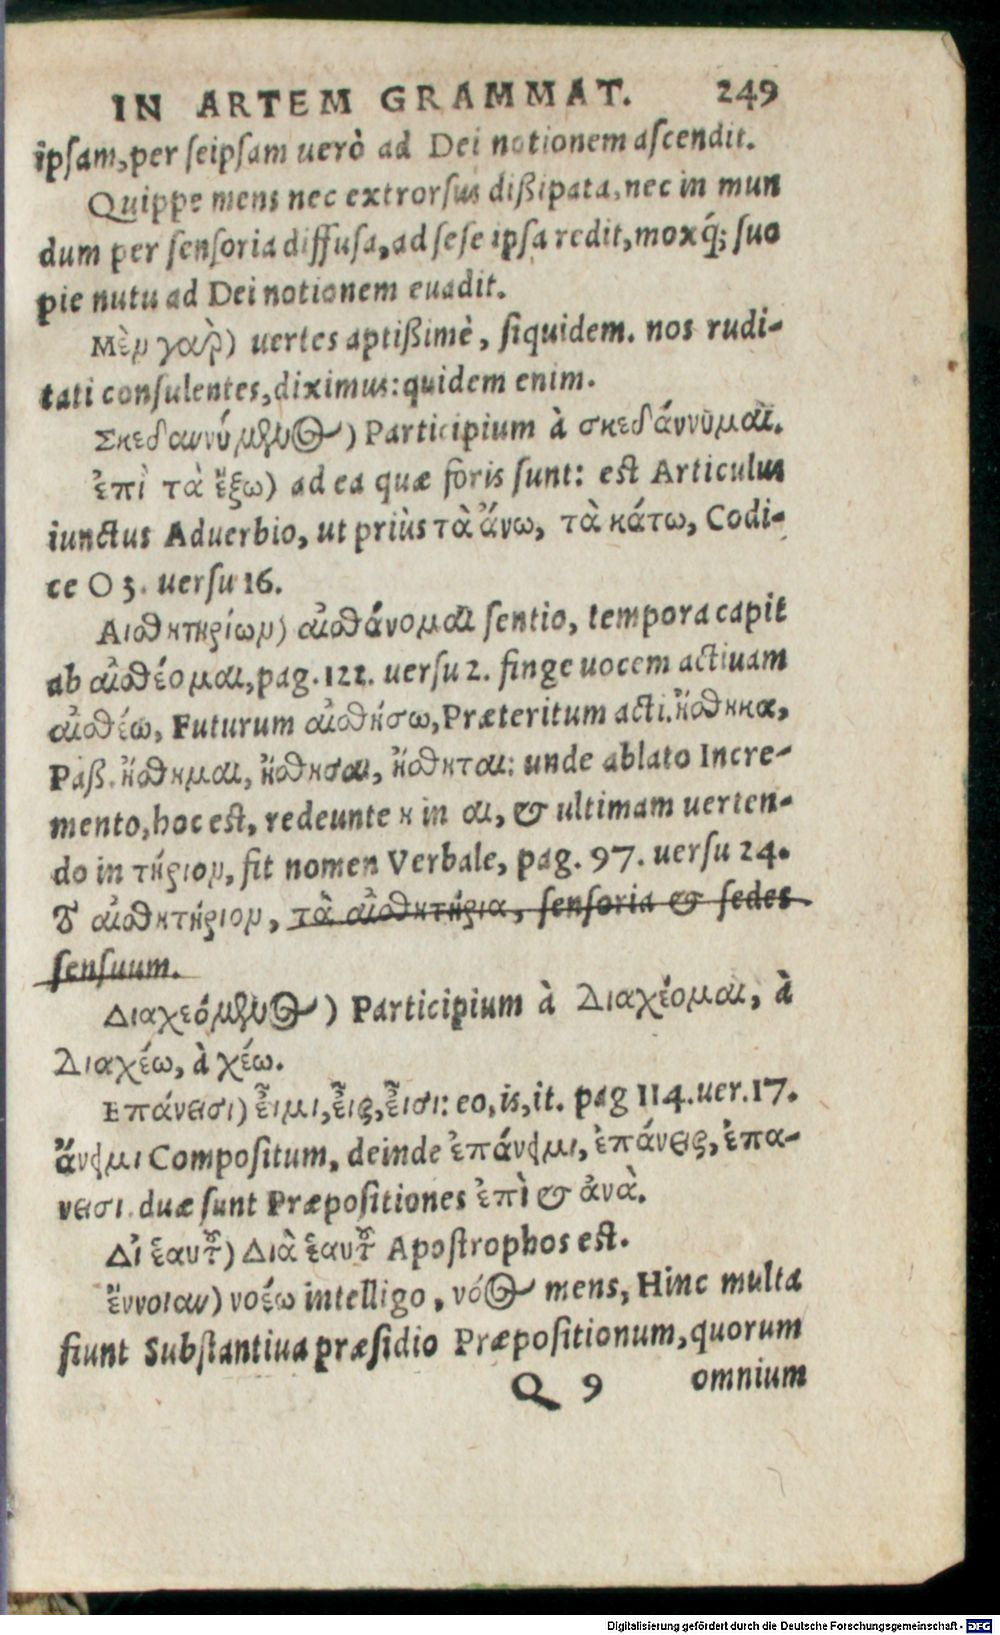 IN ARTEM GRAMMAT. 249
ipsam, per seipsam uerò ad Dei notionem ascendit.
Quippe mens nec extrorsus dißipata, nec in mun
dum per sensoria diffusa, ad sese ipsa redit, moxq́; suo
pie nutu ad Dei notionem euadit.
Μὲν γαρ̀) uertes aptißimè, siquidem. nos rudi-
tati consulentes, diximus: quidem enim.
Σκεδαννύμενος) Participium à σκεδάννυμαι.
ἐπὶ τὰ ἔξω) ad ea quæ foris sunt: est Articulus
iunctus Aduerbio, ut priùs τὰ ἄνω, τὰ κάτω, Codi-
ce O 3. uersu 16.
Αισθητηρίων) αἰσθάνομαι sentio, tempora capit
ab αἰσθέομαι, pag. 122. uersu 2. finge uocem actiuam
αἰσθέω, Futurum αἰσθήσω, Præteritum acti. ἤσθηκα,
Paß. ἤσθημαι, ἤσθησαι, ἤσθηται: unde ablato Incre-
mento, hoc est, redeunte η in αι, & ultimam uerten-
do in τήριον, fit nomen Verbale, pag. 97. uersu 24.
τὸ αἰσθητήριον, τὰ αἰσθητήρια, sensoria & sedes
sensuum.
Διαχεόμενος) Participium à Διαχέομαι, à
Διαχέω, à χέω.
Επάνεισι) εἶμι, εἶς, εἶσι: eo, is, it. pag 114. uer. 17.
ἄνειμι Compositum, deinde ἐπάνειμι, ἐπάνεις, ἐπα-
νεισι. duæ sunt Præpositiones ἐπὶ & ἀνὰ.
Δἰ ἑαυτοῦ) Διὰ ἑαυτοῦ Apostrophos est.
ἔννοιαν) νοέω intelligo, νόος mens, Hinc multa
fiunt Substantiua præsidio Præpositionum, quorum
Q 9 omnium
Digitalisierung gefördert durch die Deutsche Forschungsgemeinschaft - DFG